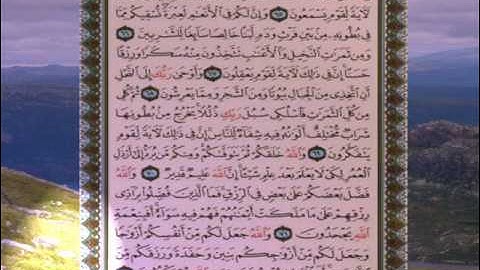 لَأٓيَةً لِّقَوْمٍ يَسْمَعُونَ ٦٥ وَإِنَّ لَكُمْ فِي ٱلْأَنْعَٰمِ لَعِبْرَةً نُّسْقِيكُم مِّمَّا
فِي بُطُونِهِۦ مِنۢ بَيْنِ فَرْثٍ وَدَمٍ لَّبَنًا خَالِصًا سَآئِغًا لِّلشَّٰرِبِينَ ٦٦
وَمِن ثَمَرَٰتِ ٱلنَّخِيلِ وَٱلْأَعْنَٰبِ تَتَّخِذُونَ مِنْهُ سَكَرًا وَرِزْقًا
حَسَنًا إِنَّ فِي ذَٰلِكَ لَأٓيَةً لِّقَوْمٍ يَعْقِلُونَ ٦٧ وَأَوْحَىٰ رَبُّكَ إِلَى ٱلنَّحْلِ
أَنِ ٱتَّخِذِي مِنَ ٱلْجِبَالِ بُيُوتًا وَمِنَ ٱلشَّجَرِ وَمِمَّا يَعْرِشُونَ ٦٨ ثُمَّ كُلِي
مِن كُلِّ ٱلثَّمَرَٰتِ فَٱسْلُكِي سُبُلَ رَبِّكِ ذُلُلًا يَخْرُجُ مِنۢ بُطُونِهَا
شَرَابٌ مُّخْتَلِفٌ أَلْوَٰنُهُۥ فِيهِ شِفَآءٌ لِّلنَّاسِ إِنَّ فِي ذَٰلِكَ لَأٓيَةً لِّقَوْمٍ
يَتَفَكَّرُونَ ٦٩ وَٱللَّهُ خَلَقَكُمْ ثُمَّ يَتَوَفَّىٰكُمْ وَمِنكُم مَّن يُرَدُّ إِلَىٰٓ أَرْذَلِ
ٱلْعُمُرِ لِكَيْ لَا يَعْلَمَ بَعْدَ عِلْمٍ شَيْـًٔا إِنَّ ٱللَّهَ عَلِيمٌ قَدِيرٌ ٧٠ وَٱللَّهُ
فَضَّلَ بَعْضَكُمْ عَلَىٰ بَعْضٍ فِي ٱلرِّزْقِ فَمَا ٱلَّذِينَ فُضِّلُوا۟ بِرَآدِّي
رِزْقِهِمْ عَلَىٰ مَا مَلَكَتْ أَيْمَٰنُهُمْ فَهُمْ فِيهِ سَوَآءٌ أَفَبِنِعْمَةِ
ٱللَّهِ يَجْحَدُونَ ٧١ وَٱللَّهُ جَعَلَ لَكُم مِّنْ أَنفُسِكُمْ أَزْوَٰجًا
وَجَعَلَ لَكُم مِّنْ أَزْوَٰجِكُم بَنِينَ وَحَفَدَةً وَرَزَقَكُم مِّنَ